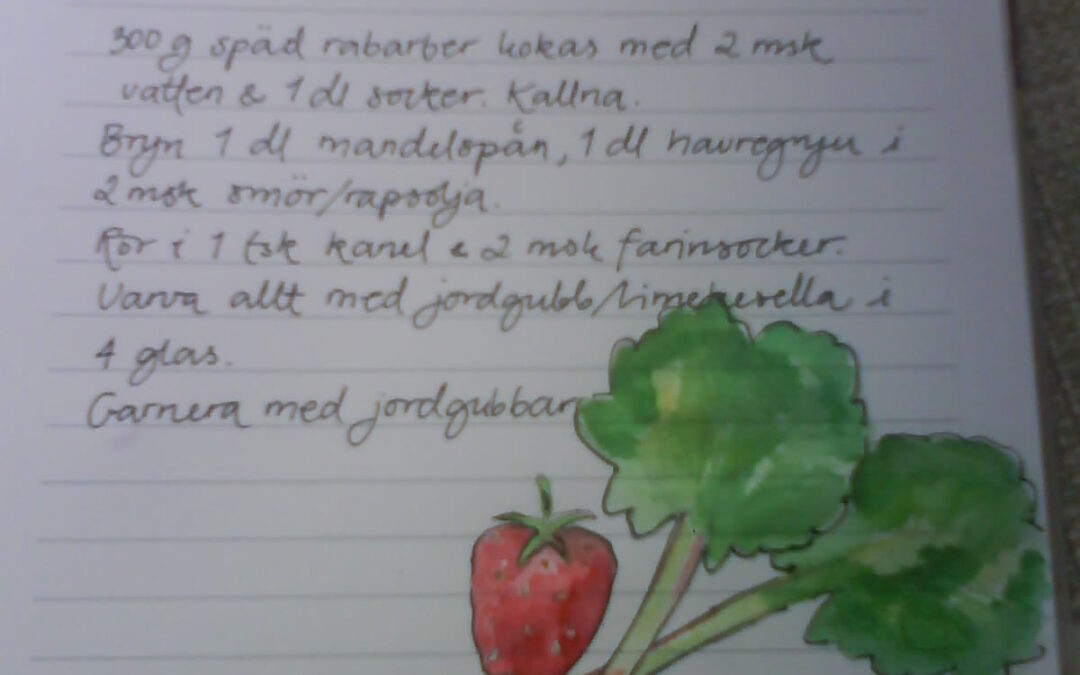 300 g späd rabarber kokas med 2 msk
vatten & 1 dl socker. Kallna.
Bryn 1 dl mandelspån, 1 dl havregryn i
2 msk smör/rapsolja.
Rör i 1 tsk kanel & 2 msk farinsocker.
Varva allt med jordgubb/limekesella i
4 glas.
Garnera med jordgubbar